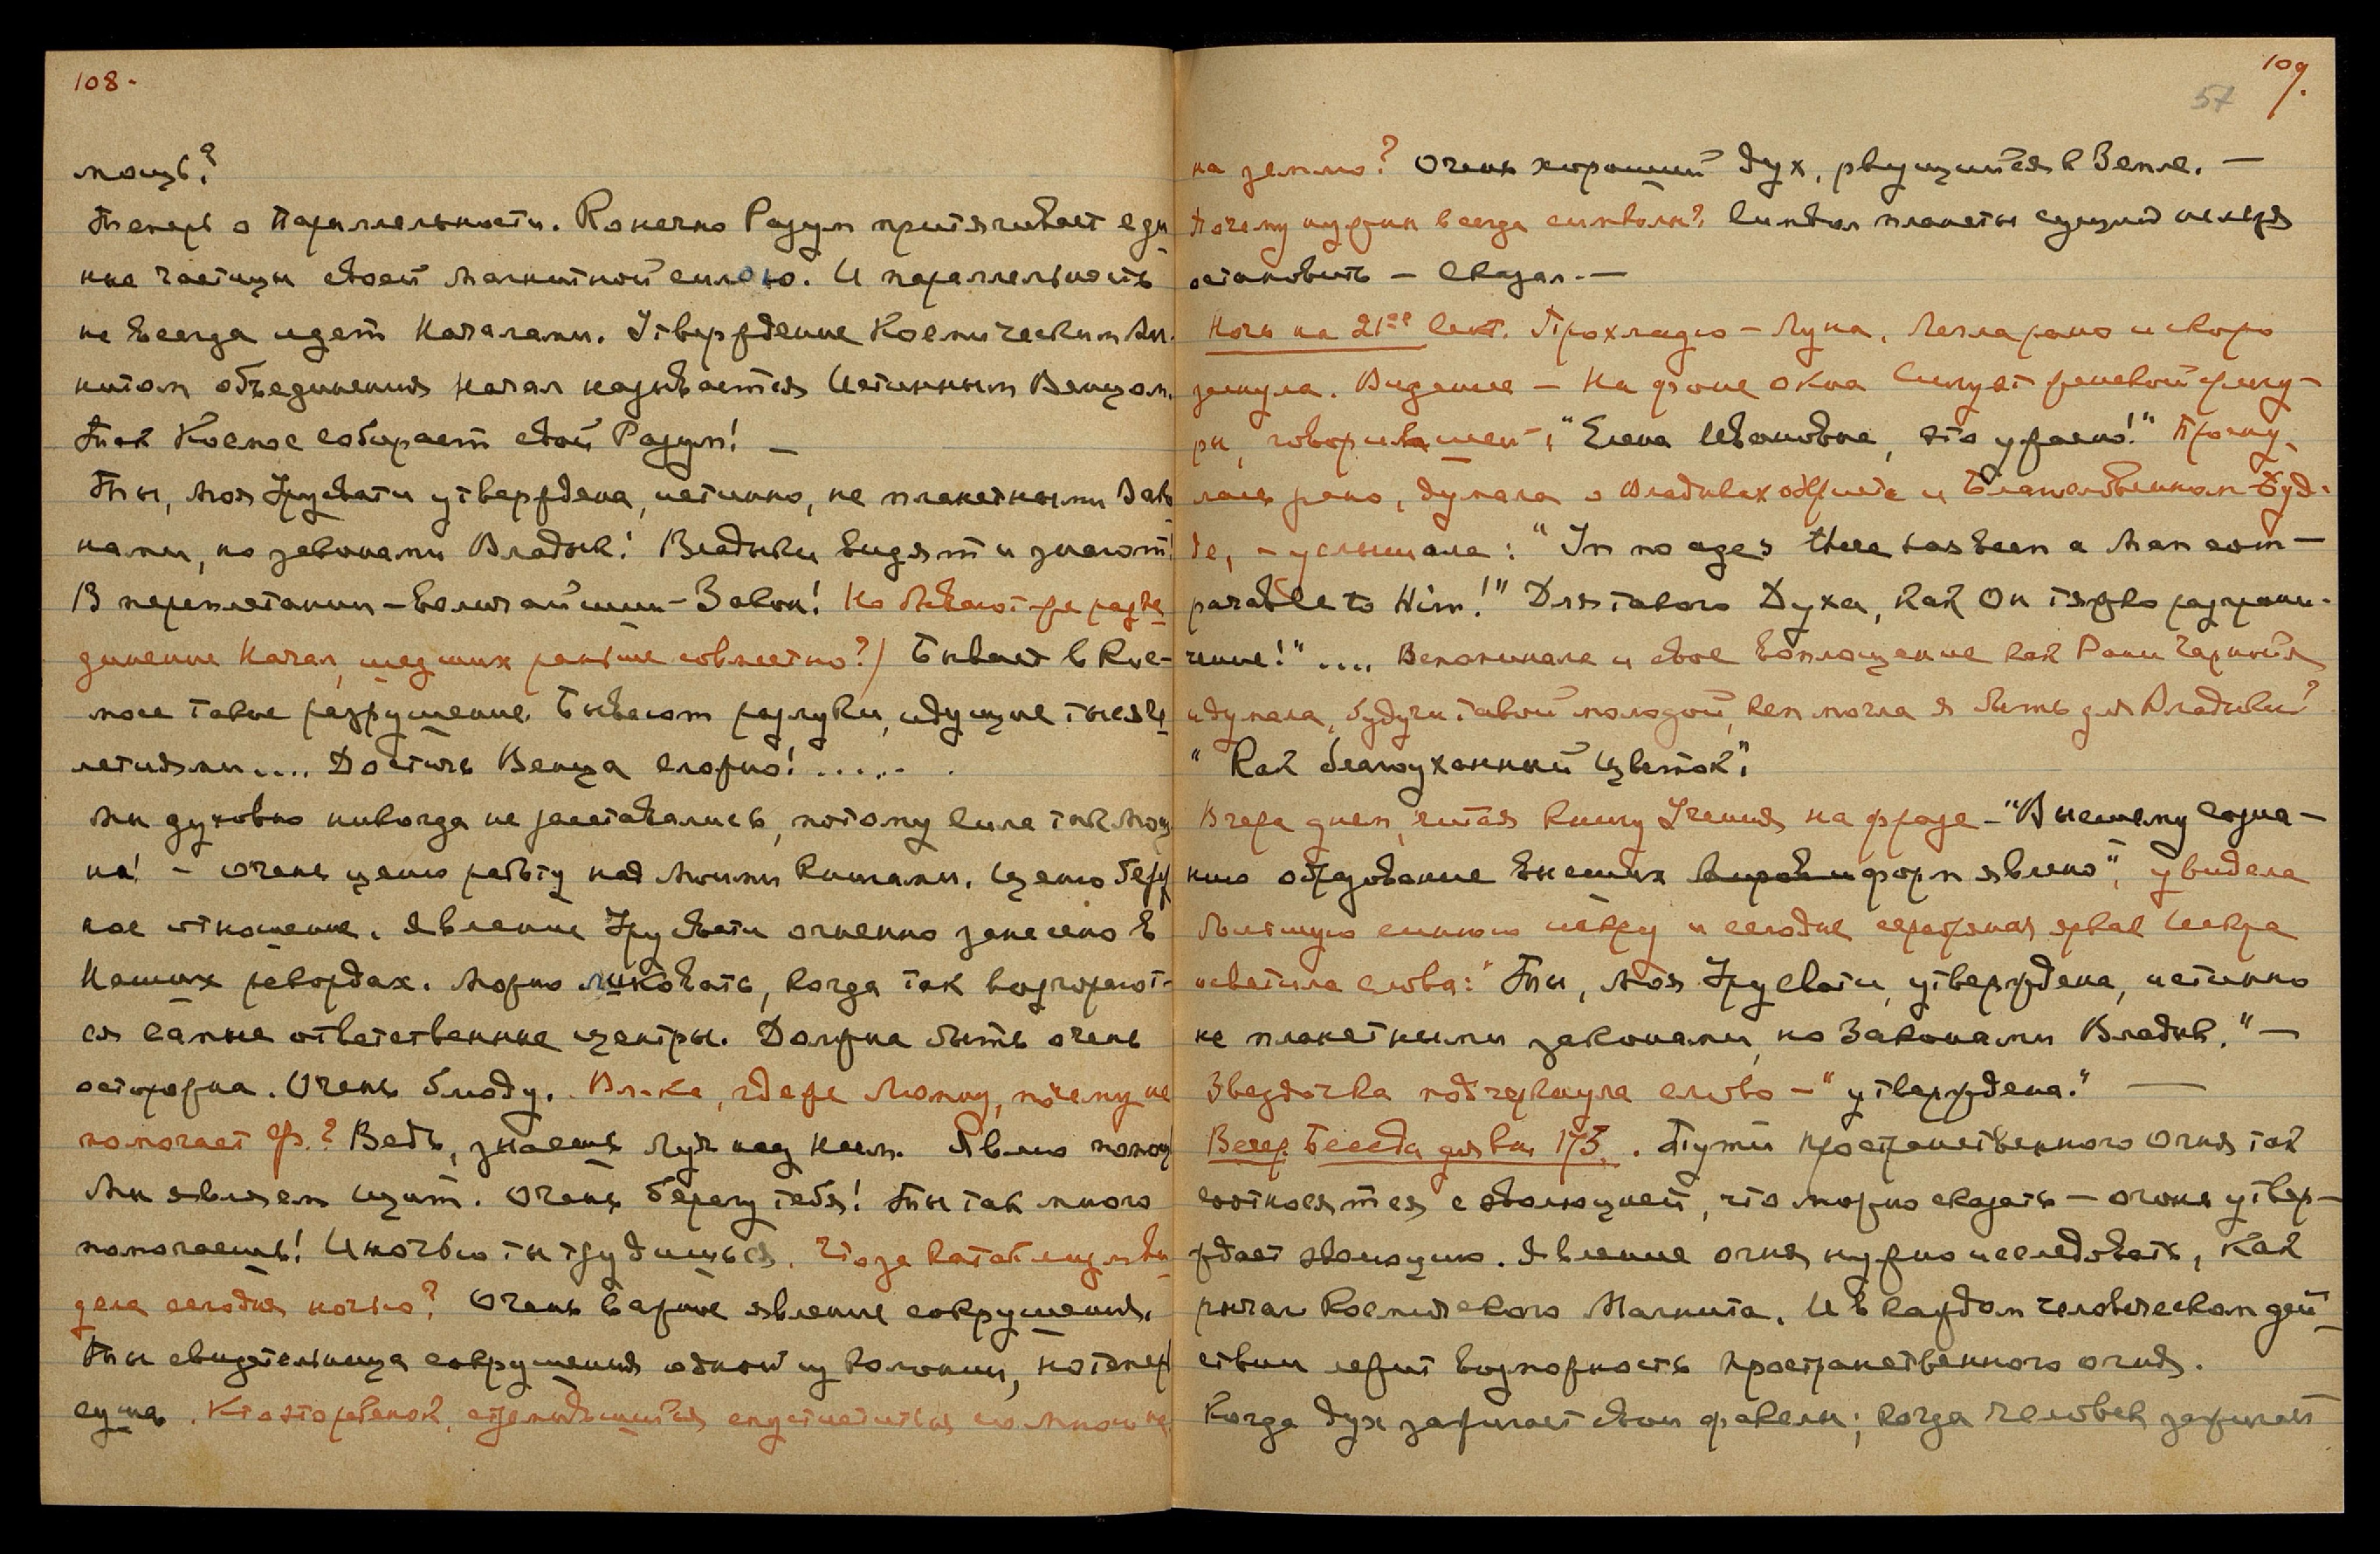 108.
мощь?
Теперь о Параллельности. Конечно Разум притягивает еди
ные частицы своей магнитной силою. И параллельность
не всегда идет Началами. Утверждение Космическим Маг
нитом объединения Начал называется Истинным Венцом.
Так Космос собирает свой Разум! —
Ты, Моя Урусвати утверждена, истинно, не планетными Зако
нами, но законами Владык! Владыки видят и знают!
В переплетании – Величайший – Закон! Но бывают же разъе
динение Начал, шедших раньше совместно?) Бывает в Кос-
мосе такое разрушение. Бывают разлуки, идущие тысяче
летиями.... Достичь Венца сложно! ......
Мы духовно никогда не расставались, потому сила так мощ
на! – Очень ценю работу над Моими Книгами. Ценю береж
ное отношение. Явление Урусвати огненно занесено в
Наших рекордах. Можно ликовать, когда так возгорают-
ся самые ответственные центры. Должна быть очень
осторожна. Очень блюду. Вл-ка, где же Люмоу, почему не
помогает Яр.? Ведь, знаешь Луч над ним. Явлю помощь
Мы являем щит. Очень берегу тебя! Ты так много
помогаешь! И ночью ты трудишься. Что за катаклизм ви
дела сегодня ночью? Очень важное явление сокрушения.
Ты свидетельница сокрушения одной из колоний, но теперь
суша. Кто это ребенок, стремившийся спуститься со мною не
109.
57
на землю? Очень хороший дух, рвущийся к Земле. —
Почему нужны всегда символы? Символ планеты сущий нельзя
остановить – Сказал. —
Ночь на 21ое Сент. Прохладно – Луна. Легла рано и скоро
заснула. Видение – На фоне окна Силуэт женской фигу-
ры, говорившей: "Елена Ивановна, это ужасно!" Просну
лась рано, думала о Владыках и Благословенном Буд-
де, – услышала: "In no ages there has been a Man com-
parable to Him!" Для такого Духа, как Он тяжко разграни-
чение!" .... Вспоминала и свое воплощение как Рани Чарнойя
и думала, будучи такой молодой, кем могла я быть для Владыки?
"Как благоуханный цветок".
Вчера днем, читая книгу Учения на фразе – "Внешнему созна-
нию образование внешних форм явлено", увидела
большую синюю искру и сегодня серебряная яркая Искра
осветила слова: "Ты, Моя Урусвати, утверждена, истинно
не планетными законами, но Законами Владык." —
Звездочка подчеркнула слово – "утверждена." —
Вечер. Беседа для вн. 173. . Пути пространственного огня так
соотносятся с эволюцией, что можно сказать – огонь утвер-
ждает эволюцию. Явление огня нужно исследовать, как
рычаг Космического Магнита. И в каждом человеческом дей
ствии лежит возможность пространственного огня.
Когда дух зажигает свои факелы; когда человек зажигает